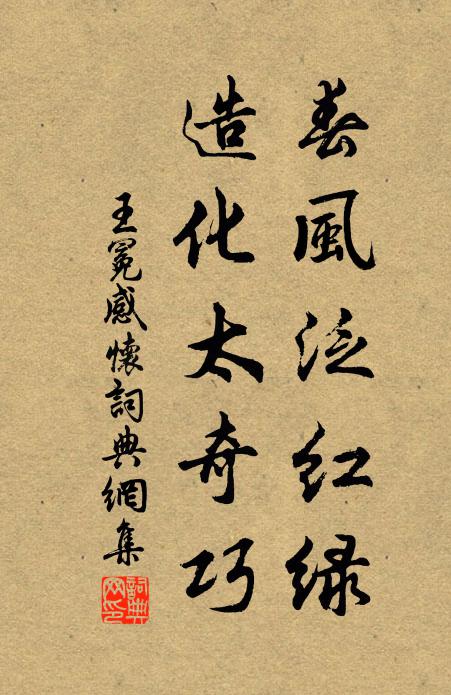 春風泛红绿
造化太奇巧
王冕感懷詞典網集
詞典网印